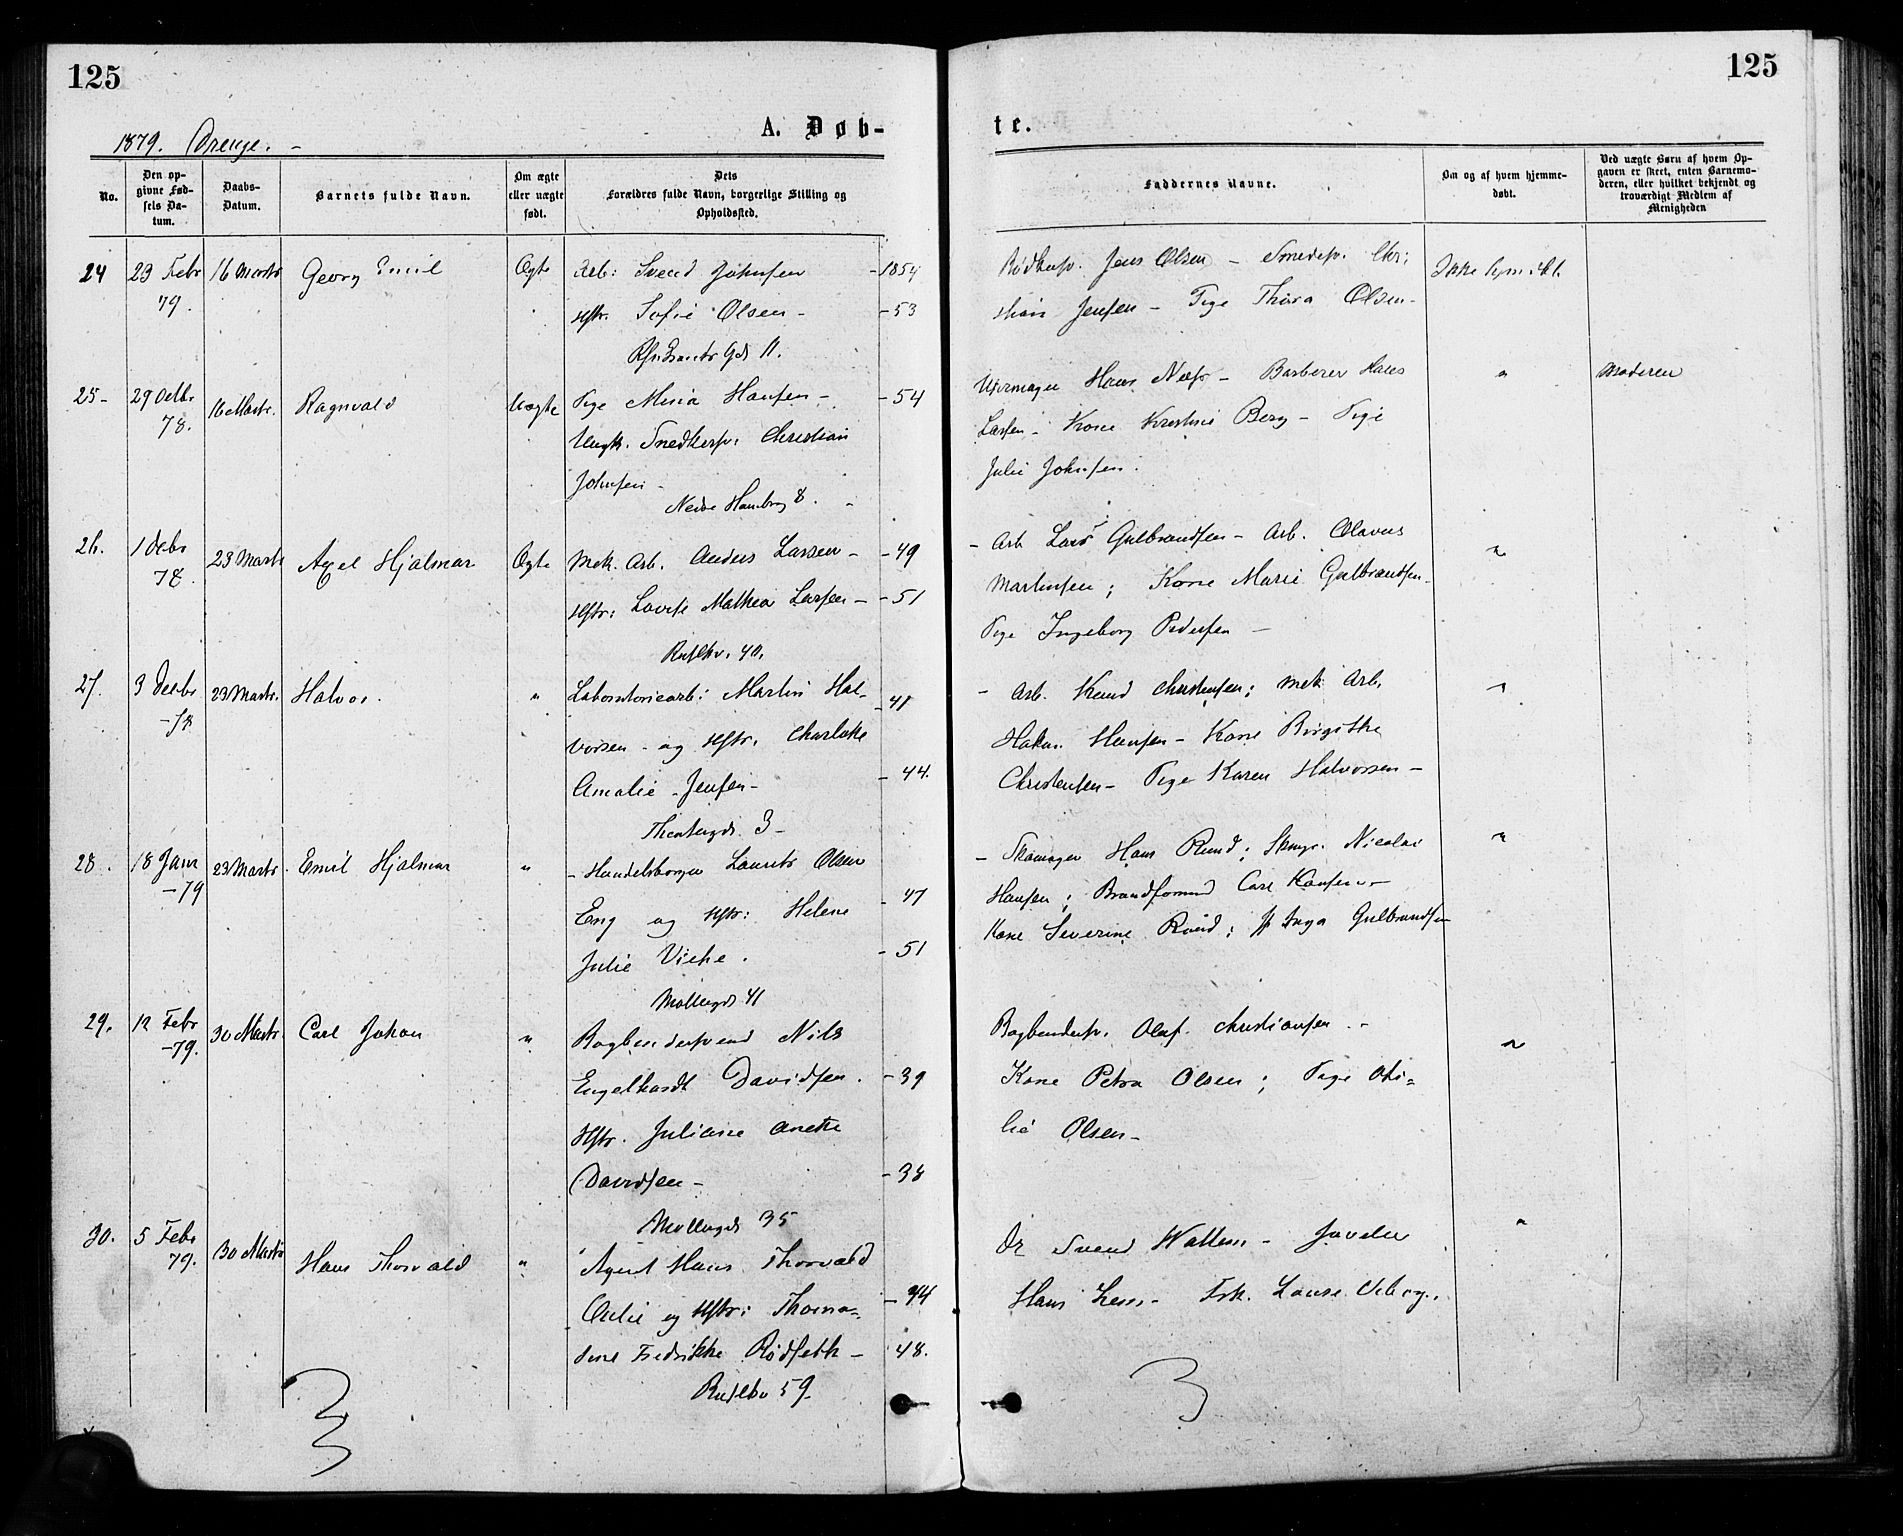 125
125
1879. Drenge. -
A. Døb-
te.
No.
Den op-
givne Fød-
sels Da-
tum.
Daabs-
Datum.
Barnets fulde Navn.
Om ægte
eller uægte
født.
Dets
Forældres fulde Navn, borgerlige Stilling og
Opholdssted.
Faddernes Navne.
Om og af hvem hjemme-
døbt.
Ved uægte Børn af hvem Op-
gaven er skeet, enten Barnemo-
deren, eller hvilket bekjendt og
troværdigt Medlem af
Menigheden
24 23 Febr 16 Marts Georg Emil Ægte Arb: Svend Johnsen -1854
79. Hstr. Sofie Olsen - -53
Gd 11.
Jens Olsen - Smedsv. Chri
stian Jensen - Pige Thora Olsen -
Ikke hjmdbt.
25- 29 Octbr 16 Marts. Ragnvald Uægte Pige Mina Hansen - -54
78. Ungk. Snedkersv. Christian
Johnsen -
Nedre Hambrog 8. -
Urmager Hans - Barberer Hans
Larsen - Kone Kristine Berg - Pige
Julie Johnsen.
" Moderen
26. 1 Debr 23 Marts Axel Hjalmar Ægte Mek. Arb. Anders Larsen - -49
78. Hstr: Lovise Mathea Larsen - -51
Rusløkv. 40.
- Arb Lars Gulbrandsen - Arb. Olavus
Martinsen; Kone Marie Gulbrandsen -
Pige Ingeborg Pedersen -
"
27. 3 Decbr 23 Marts. Halvor. " Laboratoriearb: Martin Hal- -41
-78 vorsen - og Hstr. Charlotte
Amalie - Jensen - -44.
3 -
- Arb. Knud Christensen; Mek Arb.
Hansen - Kone Birgithe
Christensen - Pige Karen Halvorsen -
"
28. 18 Janr 23 Marts. Emil Hjalmar " - Handelsborger Laurits Olsen
-79 Eng og Hstr: Helene -47
Julie Viche. -51
Møllergd 41
- Skomager Hans Rund; Skmgr. Nicolai
Hansen; Brandformd Carl Hansen -
Kone Severine Rund; Inga Gulbrandsen
"
29. 12 Febr 30 Marts. Carl Johan " Bogbindersvend Nils
-79. Engelhardt Davidsen. -39
Hstr. Juliane Anette
Davidsen - -38
Møllergd 35
Bogbindersv. Olaf Christiansen. -
Kone Petra Olsen; Pige Oti-
lie Olsen -
"
30. 5 Febr 30 Marts Hans Thorvald " Agent Hans Thorvald
79. og Hstr: Thoma- -44
dine Fredrikke Rødseth - 48.
Rusløkv 59.
Dr Svend Wallem - Juveler
Hans - Frk. Louise
"